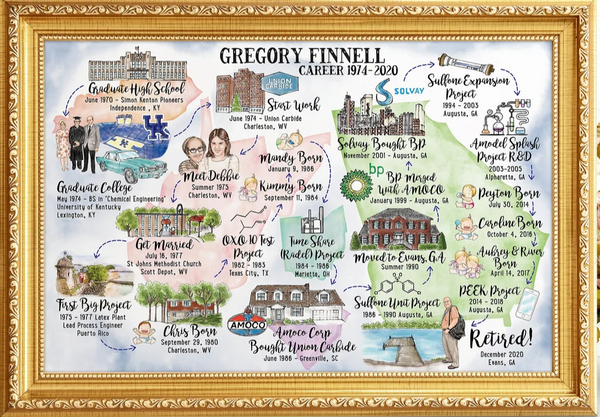 GREGORY FINNELL
CAREER 1974-2020
Graduate High School
June 1970 - Simon Kenton Pioneers
Independence, KY
UNION
CARBIDE
Start Work
June 1974 - Union Carbide
Charleston, WV
SOLVAY
Sulfone Expansion
Project
1994 - 2003
Augusta, GA
UK
Graduate College
May 1974 - BS in "Chemical Engineering"
University of Kentucky
Lexington, KY
Meet Debbie
Summer 1975
Charleston, WV
Mandy Born
January 9, 1986
Kimmy Born
September 11, 1984
Solvay Bought BP
November 2001 - Augusta, GA
bp
BP Merged
with AMOCO
January 1999 - Augusta, GA
Amodel Splash
Project R&D
2003-2005
Alpharetta, GA
Peyton Born
July 30, 2014
Caroline Born
October 4, 2016
Aubrey & River
Born
April 14, 2017
Got Married
July 16, 1977
St Johns Methodist Church
Scott Depot, WV
OXO 10 Test
Project
1982 - 1983
Texas City, TX
Time Share
(Radel) Project
1984 - 1986
Marietta, OH
Moved to Evans, GA
Summer 1990
First Big Project
1975 - 1977 Latex Plant
Lead Process Engineer
Puerto Rico
Chris Born
September 29, 1980
Charleston, WV
AMOCO
Amoco Corp
Bought Union Carbide
June 1986 - Greenville, SC
Sulfone Unit Project
1986 - 1990 Augusta, GA
PEEK Project
2014 - 2018
Augusta, GA
Retired!
December 2020
Evans, GA